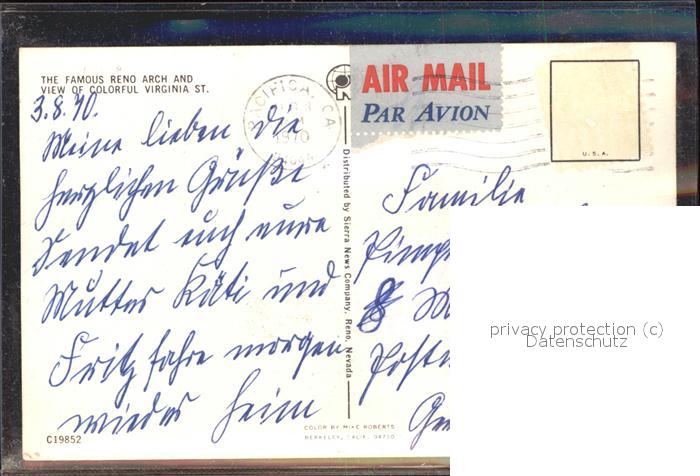 THE FAMOUS RENO ARCH AND
VIEW OF COLORFUL VIRGINIA ST.
3.8.70.
Meine lieben die
herzlichen Grüße
sendet euch eure
Mutter Käti und
Fritz fahre morgen
wieder heim
C19852
PACIFICA, CA
1970
Distributed by Sierra News Company, Reno, Nevada
COLOR BY MIKE ROBERTS
BERKELEY, CALIF. 94710
AIR MAIL
PAR AVION
U.S.A.
Familie
8 M
privacy protection (c)
Datenschutz